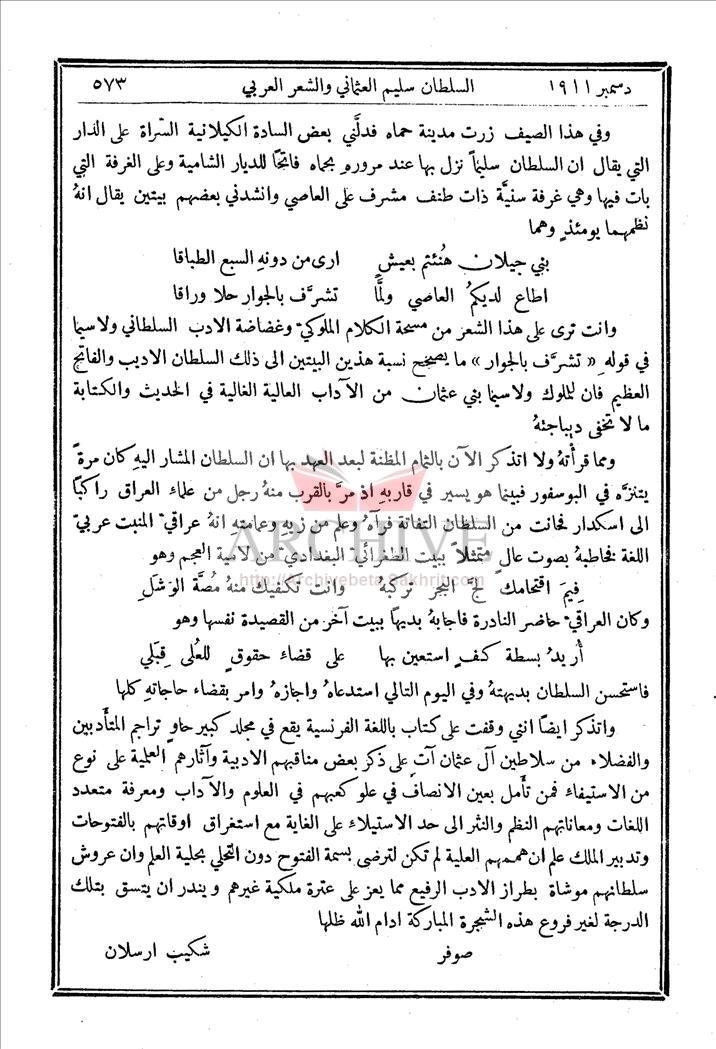 دسمبر ١٩١١ السلطان سليم العثماني والشعر العربي ٥٧٣
وفي هذا الصيف زرت مدينة حماه فدلَّني بعض السادة الكيلانية السَّراة على الدار
التي يقال ان السلطان سليماً نزل بها عند مروره بحماه فاتحًا للديار الشامية وعلى الغرفة التي
بات فيها وهي غرفة سنيَّة ذات طنف مشرف على العاصي وانشدني بعضهم بيتين يقال انهُ
نظمهما يومئذٍ وهما
بني جيلان هُنئتم بعيشٍ ارى من دونهِ السبع الطباقا
اطاع لديكمُ العاصي ولمَّا تشرَّف بالجوار حلا وراقا
وانت ترى على هذا الشعر من مسحة الكلام الملوكيّ وغضاضة الادب السلطاني ولاسيما
في قولهِ « تشرَّف بالجوار » ما يصحح نسبة هذين البيتين الى ذلك السلطان الاديب والفاتح
العظيم فان للملوك ولاسيما بني عثمان من الآداب العالية الغالية في الحديث والكتابة
ما لا تخفى ديباجتهُ
ومما قرأتهُ ولا اتذكر الآن بالتمام المظنة لبعد العهد بها ان السلطان المشار اليهِ كان مرةً
يتنزَّه في البوسفور فبينما هو يسير في قاربهِ اذ مرَّ بالقرب منهُ رجل من علماء العراق راكبًا
الى اسكدار فحانت من السلطان التفاتة فرآهُ وعلم من زيهِ وعمامتهِ انهُ عراقيّ المنبت عربيّ
اللغة فخاطبهُ بصوت عالٍ متمثلاً ببيت الطغرائيّ البغداديّ من لامية العجم وهو
ARCHIVE
http://Archivebeta.Sakhrit.com
فِيمَ اقتحامك لجَّ البحر تركبهُ وانت تكفيك منهُ مُصَّة الوَشَلِ
وكان العراقيّ حاضر النادرة فاجابهُ بديهاً ببيت آخر من القصيدة نفسها وهو
أُريدُ بسطة كفٍ استعين بها على قضاء حقوقٍ للعُلى قِبَلي
فاستحسن السلطان بديهتهُ وفي اليوم التالي استدعاهُ واجازهُ وامر بقضاء حاجاتهِ كلها
واتذكر ايضاً انني وقفت على كتاب باللغة الفرنسية يقع في مجلد كبير حاوٍ تراجم المتأدبين
والفضلاء من سلاطين آل عثمان آتٍ على ذكر بعض مناقبهم الادبية وآثارهم العلمية على نوع
من الاستيفاء فمن تأمل بعين الانصاف في علو كعبهم في العلوم والآداب ومعرفة متعدد
اللغات ومعاناتهم النظم والنثر الى حد الاستيلاء على الغاية مع استغراق اوقاتهم بالفتوحات
وتدبير الملك علم ان هممهم العلية لم تكن لترضى بسمة الفتوح دون التحلي بحلية العلم وان عروش
سلطانهم موشاة بطراز الادب الرفيع مما يعز على عترة ملكية غيرهم ويندر ان يتسق بتلك
الدرجة لغير فروع هذه الشجرة المباركة ادام الله ظلها
صوفر شكيب ارسلان